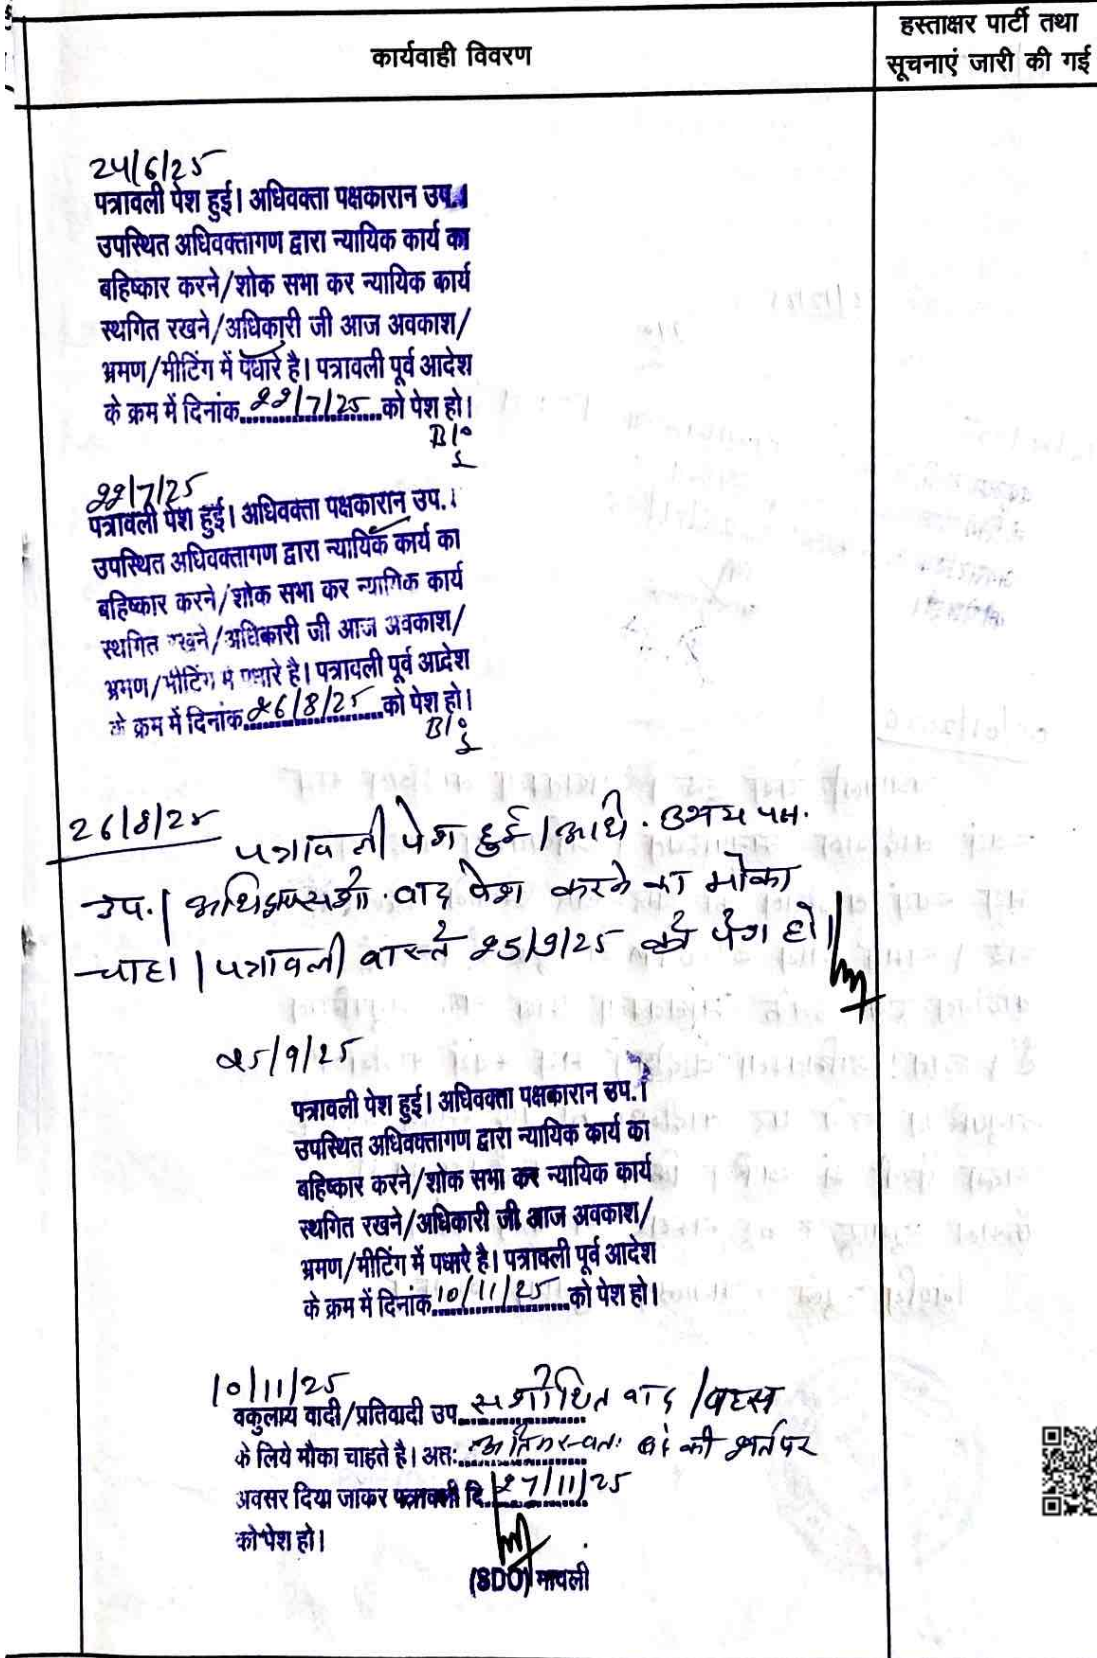 कार्यवाही विवरण
हस्ताक्षर पार्टी तथा
सूचनाएं जारी की गई
24/6/25
पत्रावली पेश हुई। अधिवक्ता पक्षकारान उप.।
उपस्थित अधिवक्तागण द्वारा न्यायिक कार्य का
बहिष्कार करने/शोक सभा कर न्यायिक कार्य
स्थगित रखने/अधिकारी जी आज अवकाश/
भ्रमण/मीटिंग में पधारे है। पत्रावली पूर्व आदेश
के क्रम में दिनांक 22/7/25 को पेश हो।
22/7/25
पत्रावली पेश हुई। अधिवक्ता पक्षकारान उप.।
उपस्थित अधिवक्तागण द्वारा न्यायिक कार्य का
बहिष्कार करने/शोक सभा कर न्यायिक कार्य
स्थगित रखने/अधिकारी जी आज अवकाश/
भ्रमण/मीटिंग में पधारे है। पत्रावली पूर्व आदेश
के क्रम में दिनांक 26/8/25 को पेश हो।
26/8/25
पत्रावली पेश हुई। अधि. उभय पक्ष.
उप.। वाद पेश करने का मौका
चाहा। पत्रावली वास्ते 25/9/25 को पेश हो।
25/9/25
पत्रावली पेश हुई। अधिवक्ता पक्षकारान उप.।
उपस्थित अधिवक्तागण द्वारा न्यायिक कार्य का
बहिष्कार करने/शोक सभा कर न्यायिक कार्य
स्थगित रखने/अधिकारी जी आज अवकाश/
भ्रमण/मीटिंग में पधारे है। पत्रावली पूर्व आदेश
के क्रम में दिनांक 10/11/25 को पेश हो।
10/11/25
वकुलाय वादी/प्रतिवादी उप. संशोधित वाद/बहस
के लिये मौका चाहते है। अतः की शर्त पर
अवसर दिया जाकर पत्रावली दि. 27/11/25
को पेश हो।
(SDO) मावली